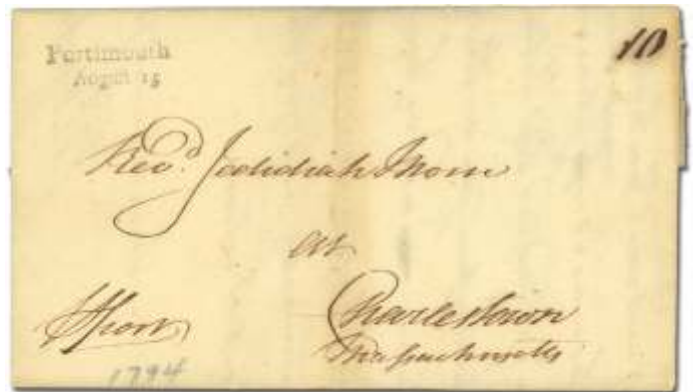 Portsmouth
August 15
10
Revd. Jedidiah Morse
at
Charlestown
Massachusetts
1794